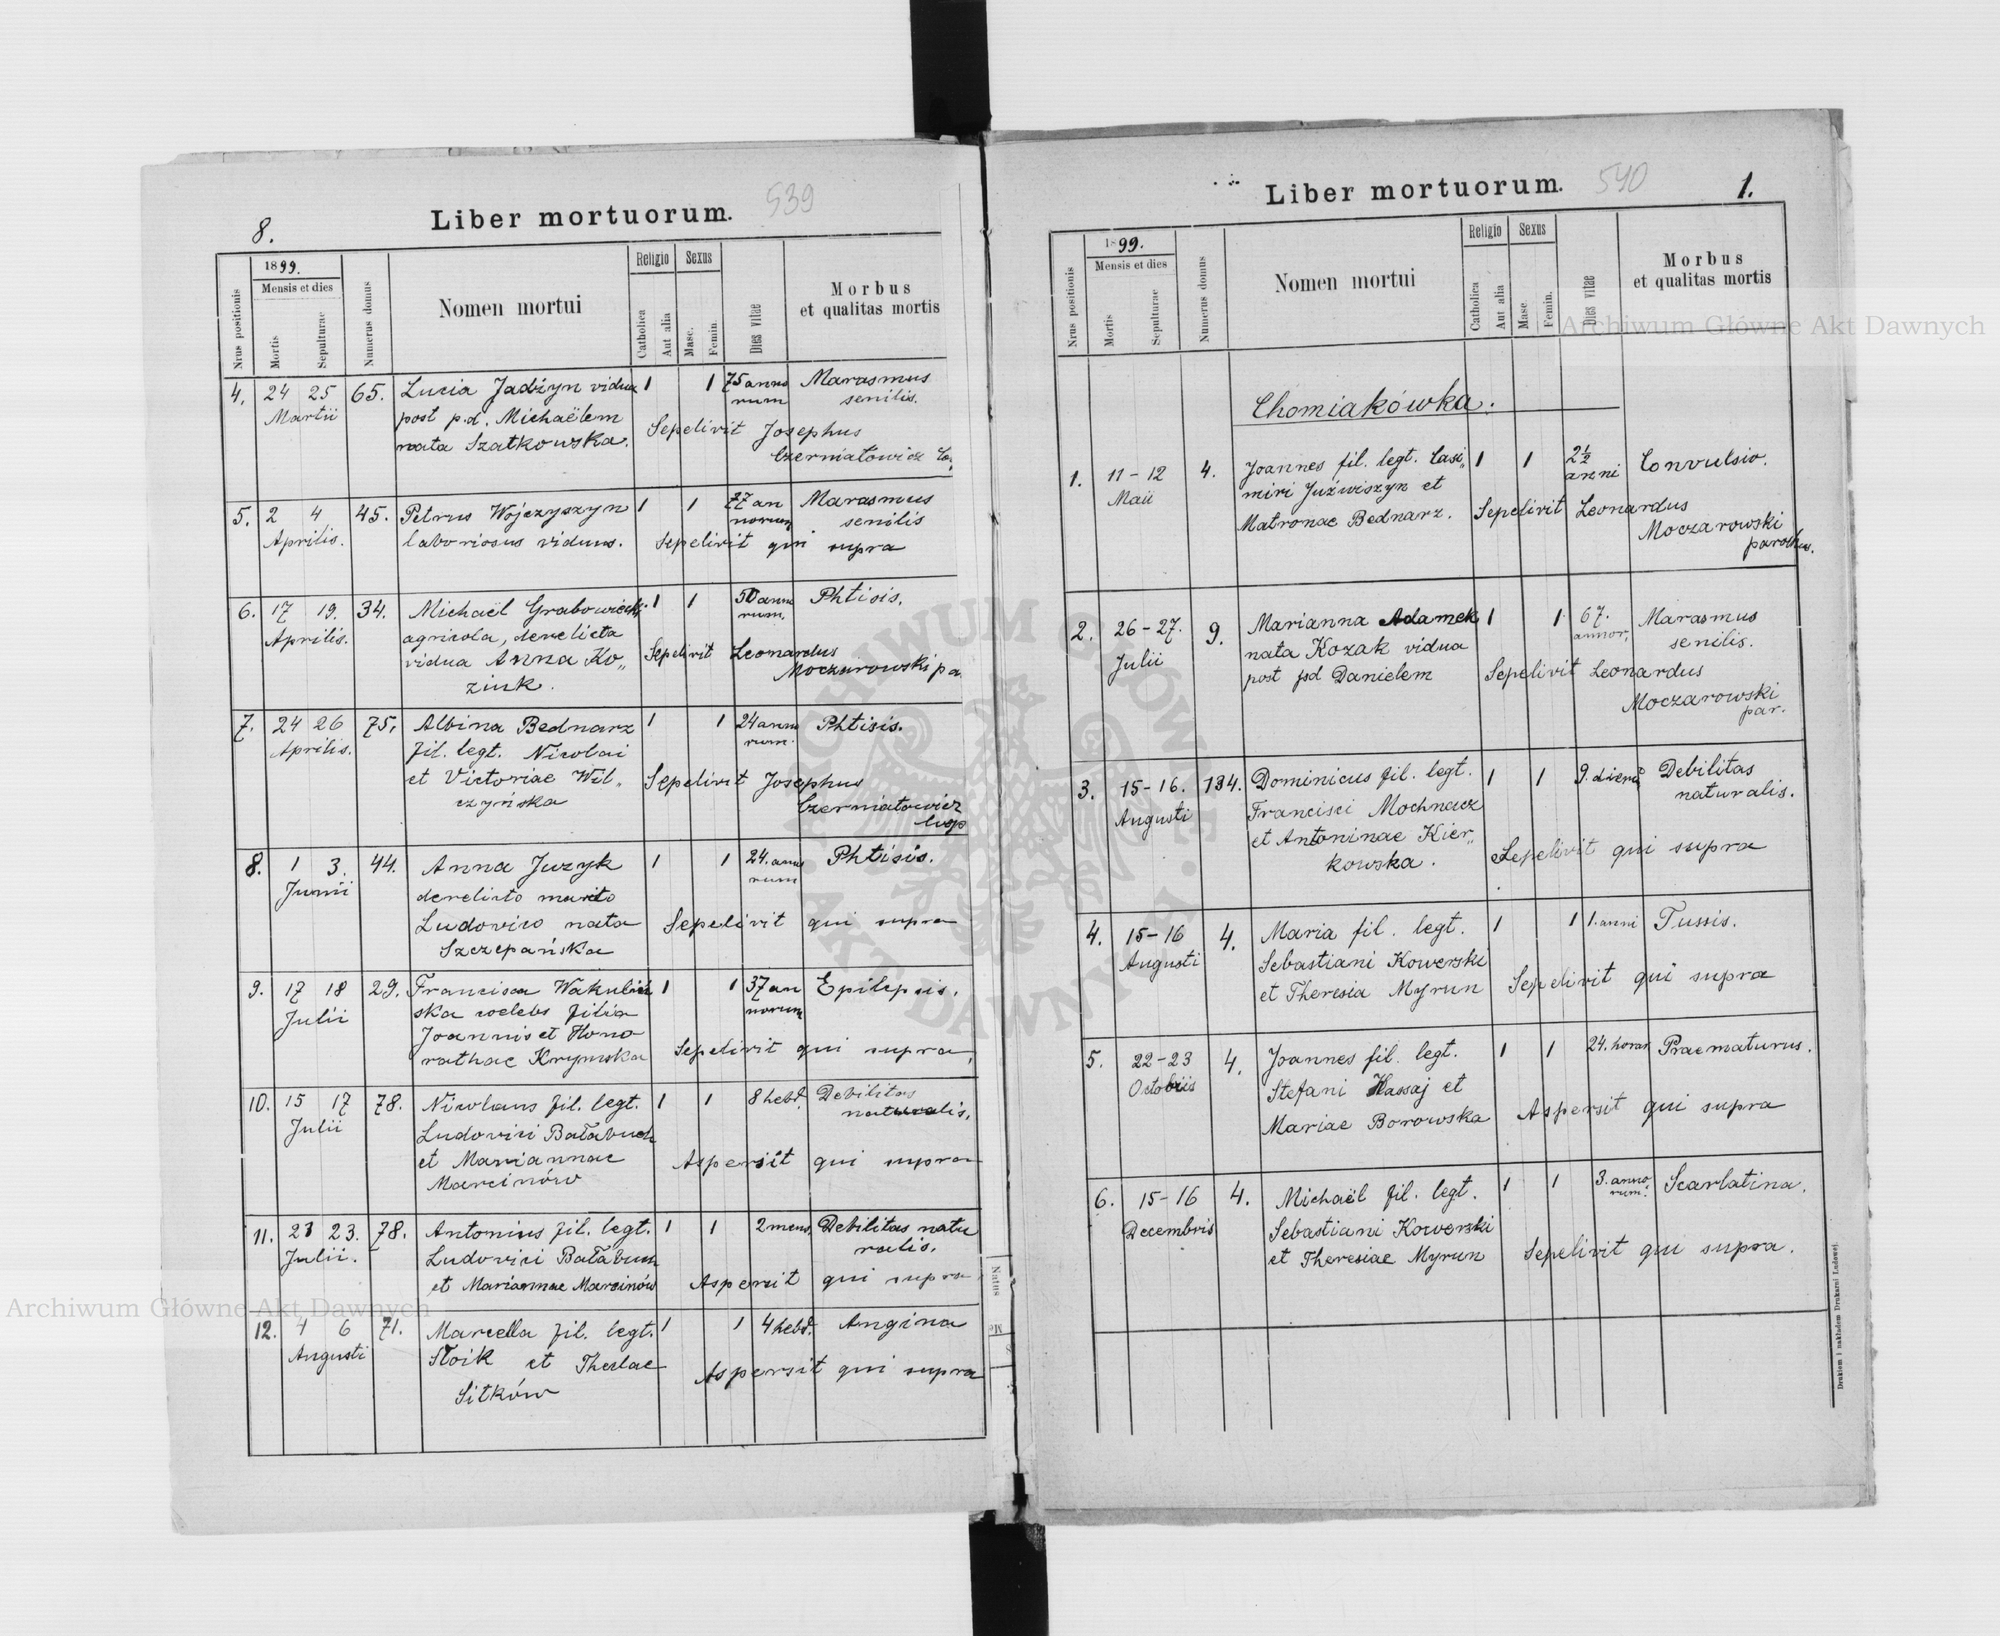 Liber mortuorum. 539
8.
Nrus positionis
1899.
Mensis et dies
Mortis
Sepulturae
Numerus domus
Nomen mortui
Religio
Catholica
Aut alia
Sexus
Masc.
Femin.
Dies vitae
Morbus
et qualitas mortis
4. 24 25 65. Lucia Jadżyn vidua 1 1 75 anno Marasmus
Martii post p.d. Michaëlem rum senilis.
nata Szatkowska. Sepelivit Josephus
Czerniatowicz
5. 2 4 45. Petrus Wojczyszyn 1 1 77 an Marasmus
Aprilis. laboriosus viduus. norum senilis
Sepelivit qui supra
6. 17 19. 34. Michaël Grabowiecki 1 1 50 anno Phtisis.
Aprilis. agricola, derelicta rum.
vidua Anna Ko„ Sepelivit Leonardus
ziuk. Moczarowski pa.
7. 24 26 75. Albina Bednarz 1 1 24 anno Phtisis.
Aprilis. fil. legt. Nicolai rum.
et Victoriae Wil„ Sepelivit Josephus
czyńska Czerniatowicz
8. 1 3. 44. Anna Juzyk 1 1 24. anno Phtisis.
Junii derelicto marito rum
Ludovico nata Sepelivit qui supra
Szczepańska
9. 17 18 29. Francisca 1 1 37 an Epilepsis.
Julii ska coelebs filia norum
Joannis et Hono
rathae Krymska Sepelivit qui supra,
10. 15 17 78. Nicolaus fil. legt. 1 1 8 hebd. Debilitas
Julii Ludovici Bałabuch naturalis.
et Mariannae Aspersit qui supra
Marcinów
11. 21 23. 78. Antonius fil. legt. 1 1 2 mens. Debilitas natu
Julii. Ludovici Bałabuch ralis.
et Mariannae Marcinów Aspersit qui supra
12. 4 6 71. Marcella fil. legt. 1 1 4 hebd. Angina
Augusti Stoik et Theclae Aspersit qui supra
Sitków
Natus
Liber mortuorum. 540
1.
Nrus positionis
1899.
Mensis et dies
Mortis
Sepulturae
Numerus domus
Nomen mortui
Religio
Catholica
Aut alia
Sexus
Masc
Femin.
Dies vitae
Morbus
et qualitas mortis
Chomiakówka.
1. 11 - 12 4. Joannes fil. legt. Casi„ 1 1 2½ Convulsio.
Maii miri Juźwiszyn et anni
Matronae Bednarz. Sepelivit Leonardus
Moczarowski
parochus.
2. 26 - 27. 9. Marianna Adamek 1 1 67. Marasmus
Julii nata Kozak vidua annor. senilis.
post pd Danielem Sepelivit Leonardus
Moczarowski
par.
3. 15 - 16. 134. Dominicus fil. legt. 1 1 9. dierū Debilitas
Augusti Francisci Mochnacz naturalis.
et Antoninae Kier„ Sepelivit qui supra
kowska.
4. 15 - 16 4. Maria fil. legt. 1 1 1. anni Tussis.
Augusti Sebastiani Kowerski
et Theresia Myrun Sepelivit qui supra
5. 22 - 23 4. Joannes fil. legt. 1 1 24. horas Praematurus.
Octobris Stefani Hassaj et
Mariae Borowska Aspersit qui supra
6. 15 - 16 4. Michaël fil. legt. 1 1 3. anno Scarlatina.
Decembris Sebastiani Kowerski rum.
et Theresiae Myrun Sepelivit qui supra.
Drukiem i nakładem Drukarni Ludowej.
Archiwum Główne Akt Dawnych
Archiwum Główne Akt Dawnych
ARCHIWUM GŁÓWNE AKT DAWNYCH